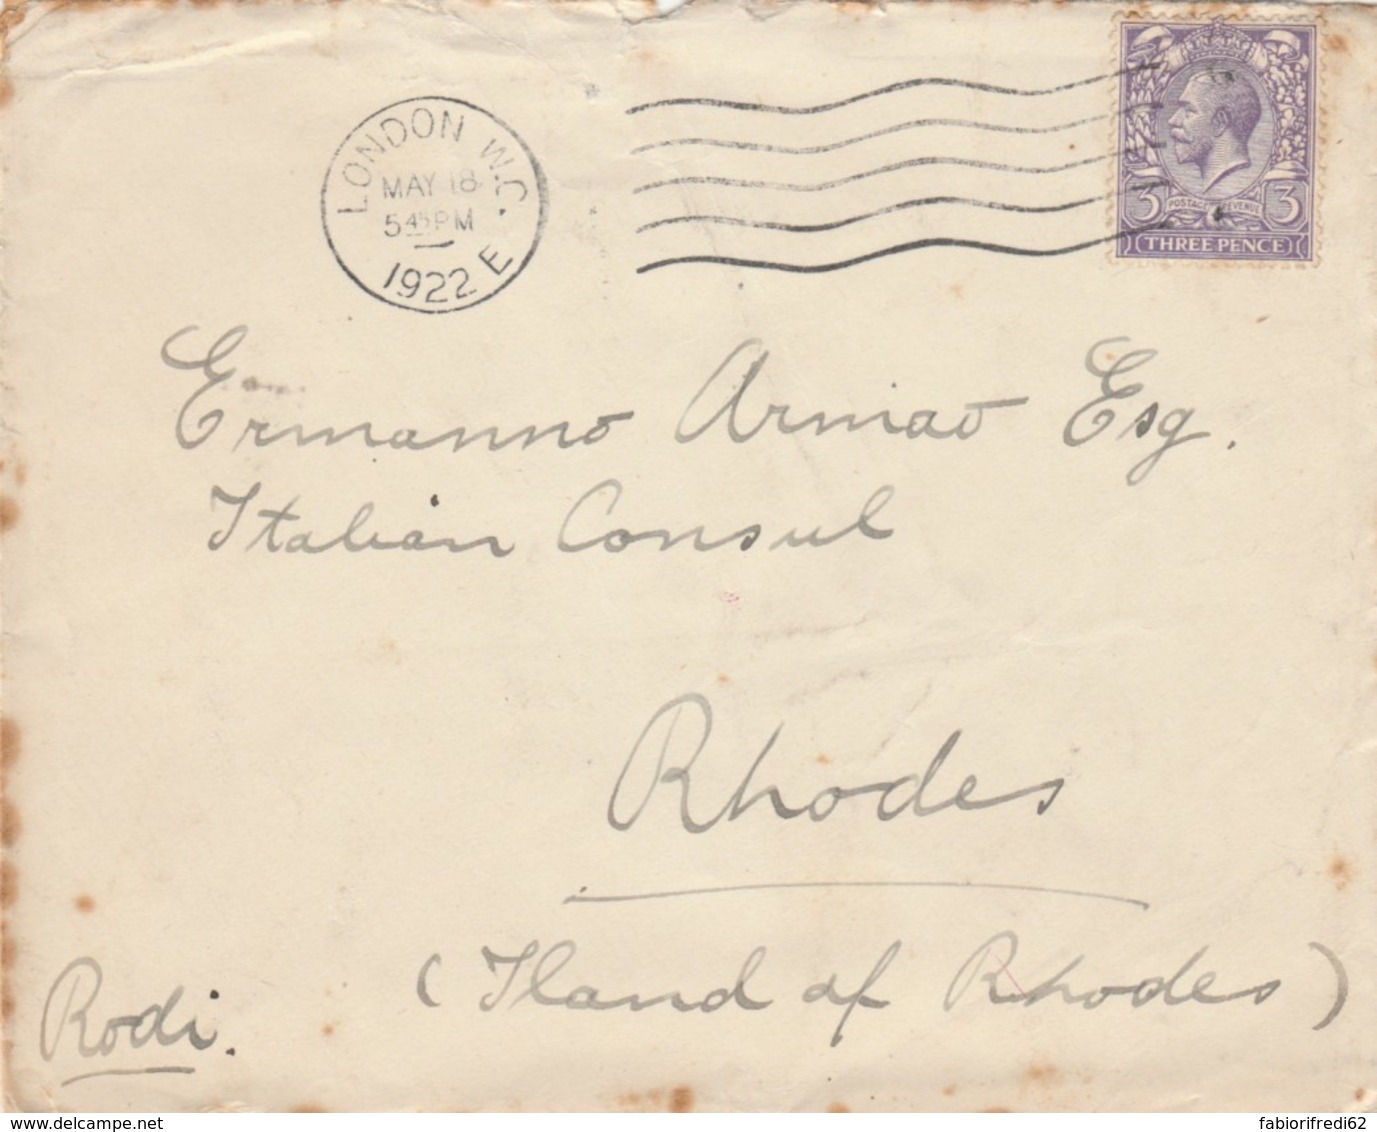 LONDON W.C.
MAY 18
5 45 PM
1922 E
POSTAGE REVENUE
3 3
THREE PENCE
Ermanno Armao Esq.
Italian Consul
Rhodes
(Iland of Rhodes)
Rodi.
delcampe.net
fabiorifredi62